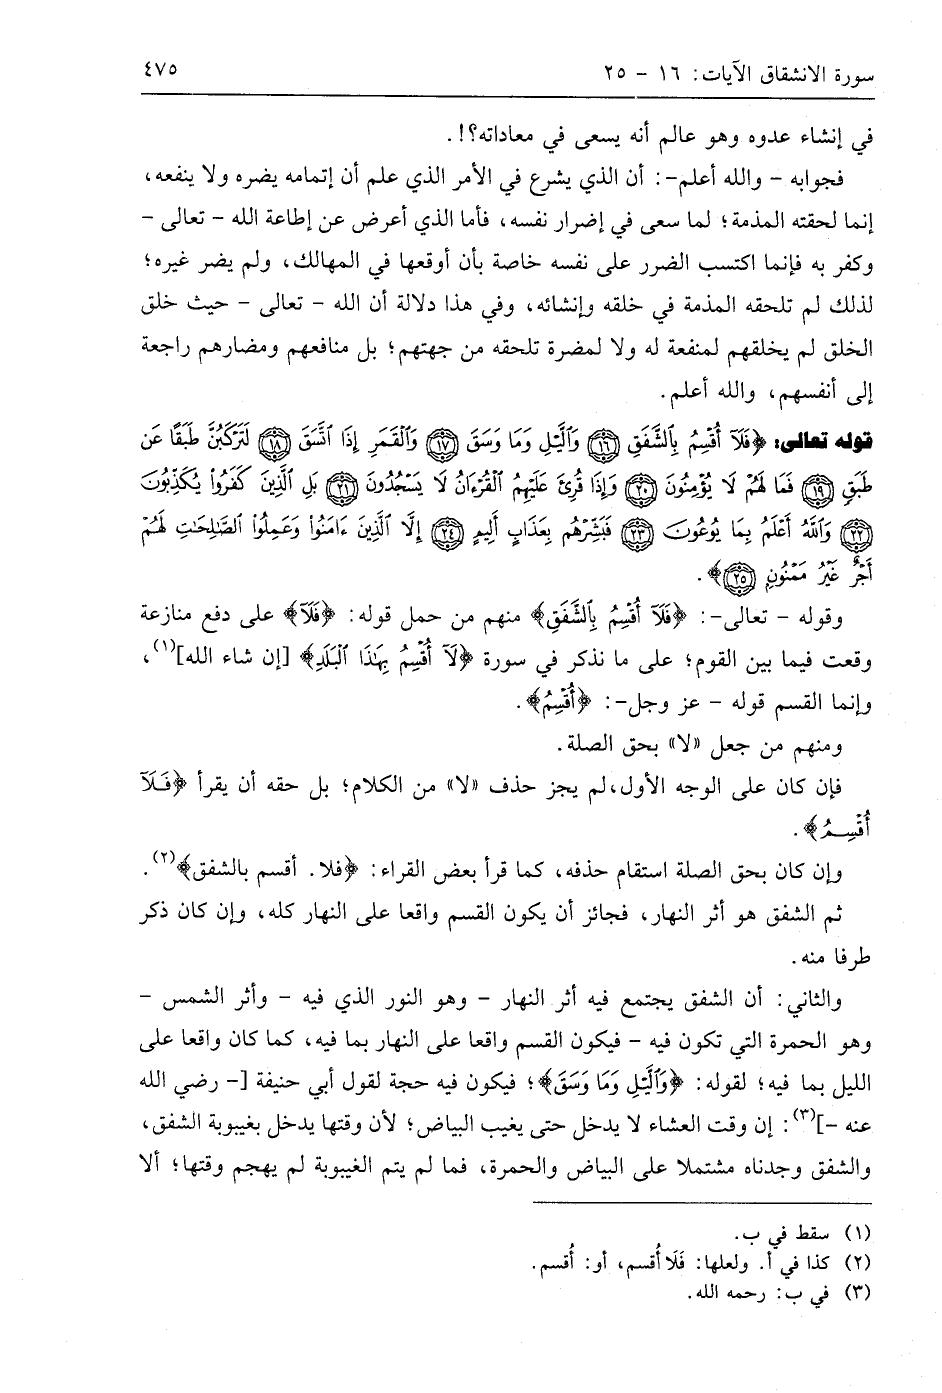 سورة الانشقاق الآيات: ١٦ - ٢٥ ٤٧٥
في إنشاء عدوه وهو عالم أنه يسعى في معاداته؟!.
فجوابه - والله أعلم-: أن الذي يشرع في الأمر الذي علم أن إتمامه يضره ولا ينفعه،
إنما لحقته المذمة؛ لما سعى في إضرار نفسه، فأما الذي أعرض عن إطاعة الله - تعالى -
وكفر به فإنما اكتسب الضرر على نفسه خاصة بأن أوقعها في المهالك، ولم يضر غيره؛
لذلك لم تلحقه المذمة في خلقه وإنشائه، وفي هذا دلالة أن الله - تعالى - حيث خلق
الخلق لم يخلقهم لمنفعة له ولا لمضرة تلحقه من جهتهم؛ بل منافعهم ومضارهم راجعة
إلى أنفسهم، والله أعلم.
قوله تعالى: ﴿فَلَآ أُقْسِمُ بِٱلشَّفَقِ ﴿١٦﴾ وَٱلَّيْلِ وَمَا وَسَقَ ﴿١٧﴾ وَٱلْقَمَرِ إِذَا ٱتَّسَقَ ﴿١٨﴾ لَتَرْكَبُنَّ طَبَقًا عَن
طَبَقٍ ﴿١٩﴾ فَمَا لَهُمْ لَا يُؤْمِنُونَ ﴿٢٠﴾ وَإِذَا قُرِئَ عَلَيْهِمُ ٱلْقُرْءَانُ لَا يَسْجُدُونَ ﴿٢١﴾ بَلِ ٱلَّذِينَ كَفَرُوا۟ يُكَذِّبُونَ
﴿٢٢﴾ وَٱللَّهُ أَعْلَمُ بِمَا يُوعُونَ ﴿٢٣﴾ فَبَشِّرْهُم بِعَذَابٍ أَلِيمٍ ﴿٢٤﴾ إِلَّا ٱلَّذِينَ ءَامَنُوا۟ وَعَمِلُوا۟ ٱلصَّٰلِحَٰتِ لَهُمْ
أَجْرٌ غَيْرُ مَمْنُونٍ ﴿٢٥﴾﴾.
وقوله - تعالى-: ﴿فَلَآ أُقْسِمُ بِٱلشَّفَقِ﴾ منهم من حمل قوله: ﴿فَلَآ﴾ على دفع منازعة
وقعت فيما بين القوم؛ على ما نذكر في سورة ﴿لَآ أُقْسِمُ بِهَٰذَا ٱلْبَلَدِ﴾ [إن شاء الله](١)،
وإنما القسم قوله - عز وجل-: ﴿أُقْسِمُ﴾.
ومنهم من جعل «لا» بحق الصلة.
فإن كان على الوجه الأول،لم يجز حذف «لا» من الكلام؛ بل حقه أن يقرأ ﴿فَلَآ
أُقْسِمُ﴾.
وإن كان بحق الصلة استقام حذفه، كما قرأ بعض القراء: ﴿فلا. أقسم بالشفق﴾(٢).
ثم الشفق هو أثر النهار، فجائز أن يكون القسم واقعا على النهار كله، وإن كان ذكر
طرفا منه.
والثاني: أن الشفق يجتمع فيه أثر النهار - وهو النور الذي فيه - وأثر الشمس -
وهو الحمرة التي تكون فيه - فيكون القسم واقعا على النهار بما فيه، كما كان واقعا على
الليل بما فيه؛ لقوله: ﴿وَٱلَّيْلِ وَمَا وَسَقَ﴾؛ فيكون فيه حجة لقول أبي حنيفة [- رضي الله
عنه -](٣): إن وقت العشاء لا يدخل حتى يغيب البياض؛ لأن وقتها يدخل بغيبوبة الشفق،
والشفق وجدناه مشتملا على البياض والحمرة، فما لم يتم الغيبوبة لم يهجم وقتها؛ ألا
(١) سقط في ب.
(٢) كذا في أ. ولعلها: فَلَأُقسم، أو: أُقسم.
(٣) في ب: رحمه الله.